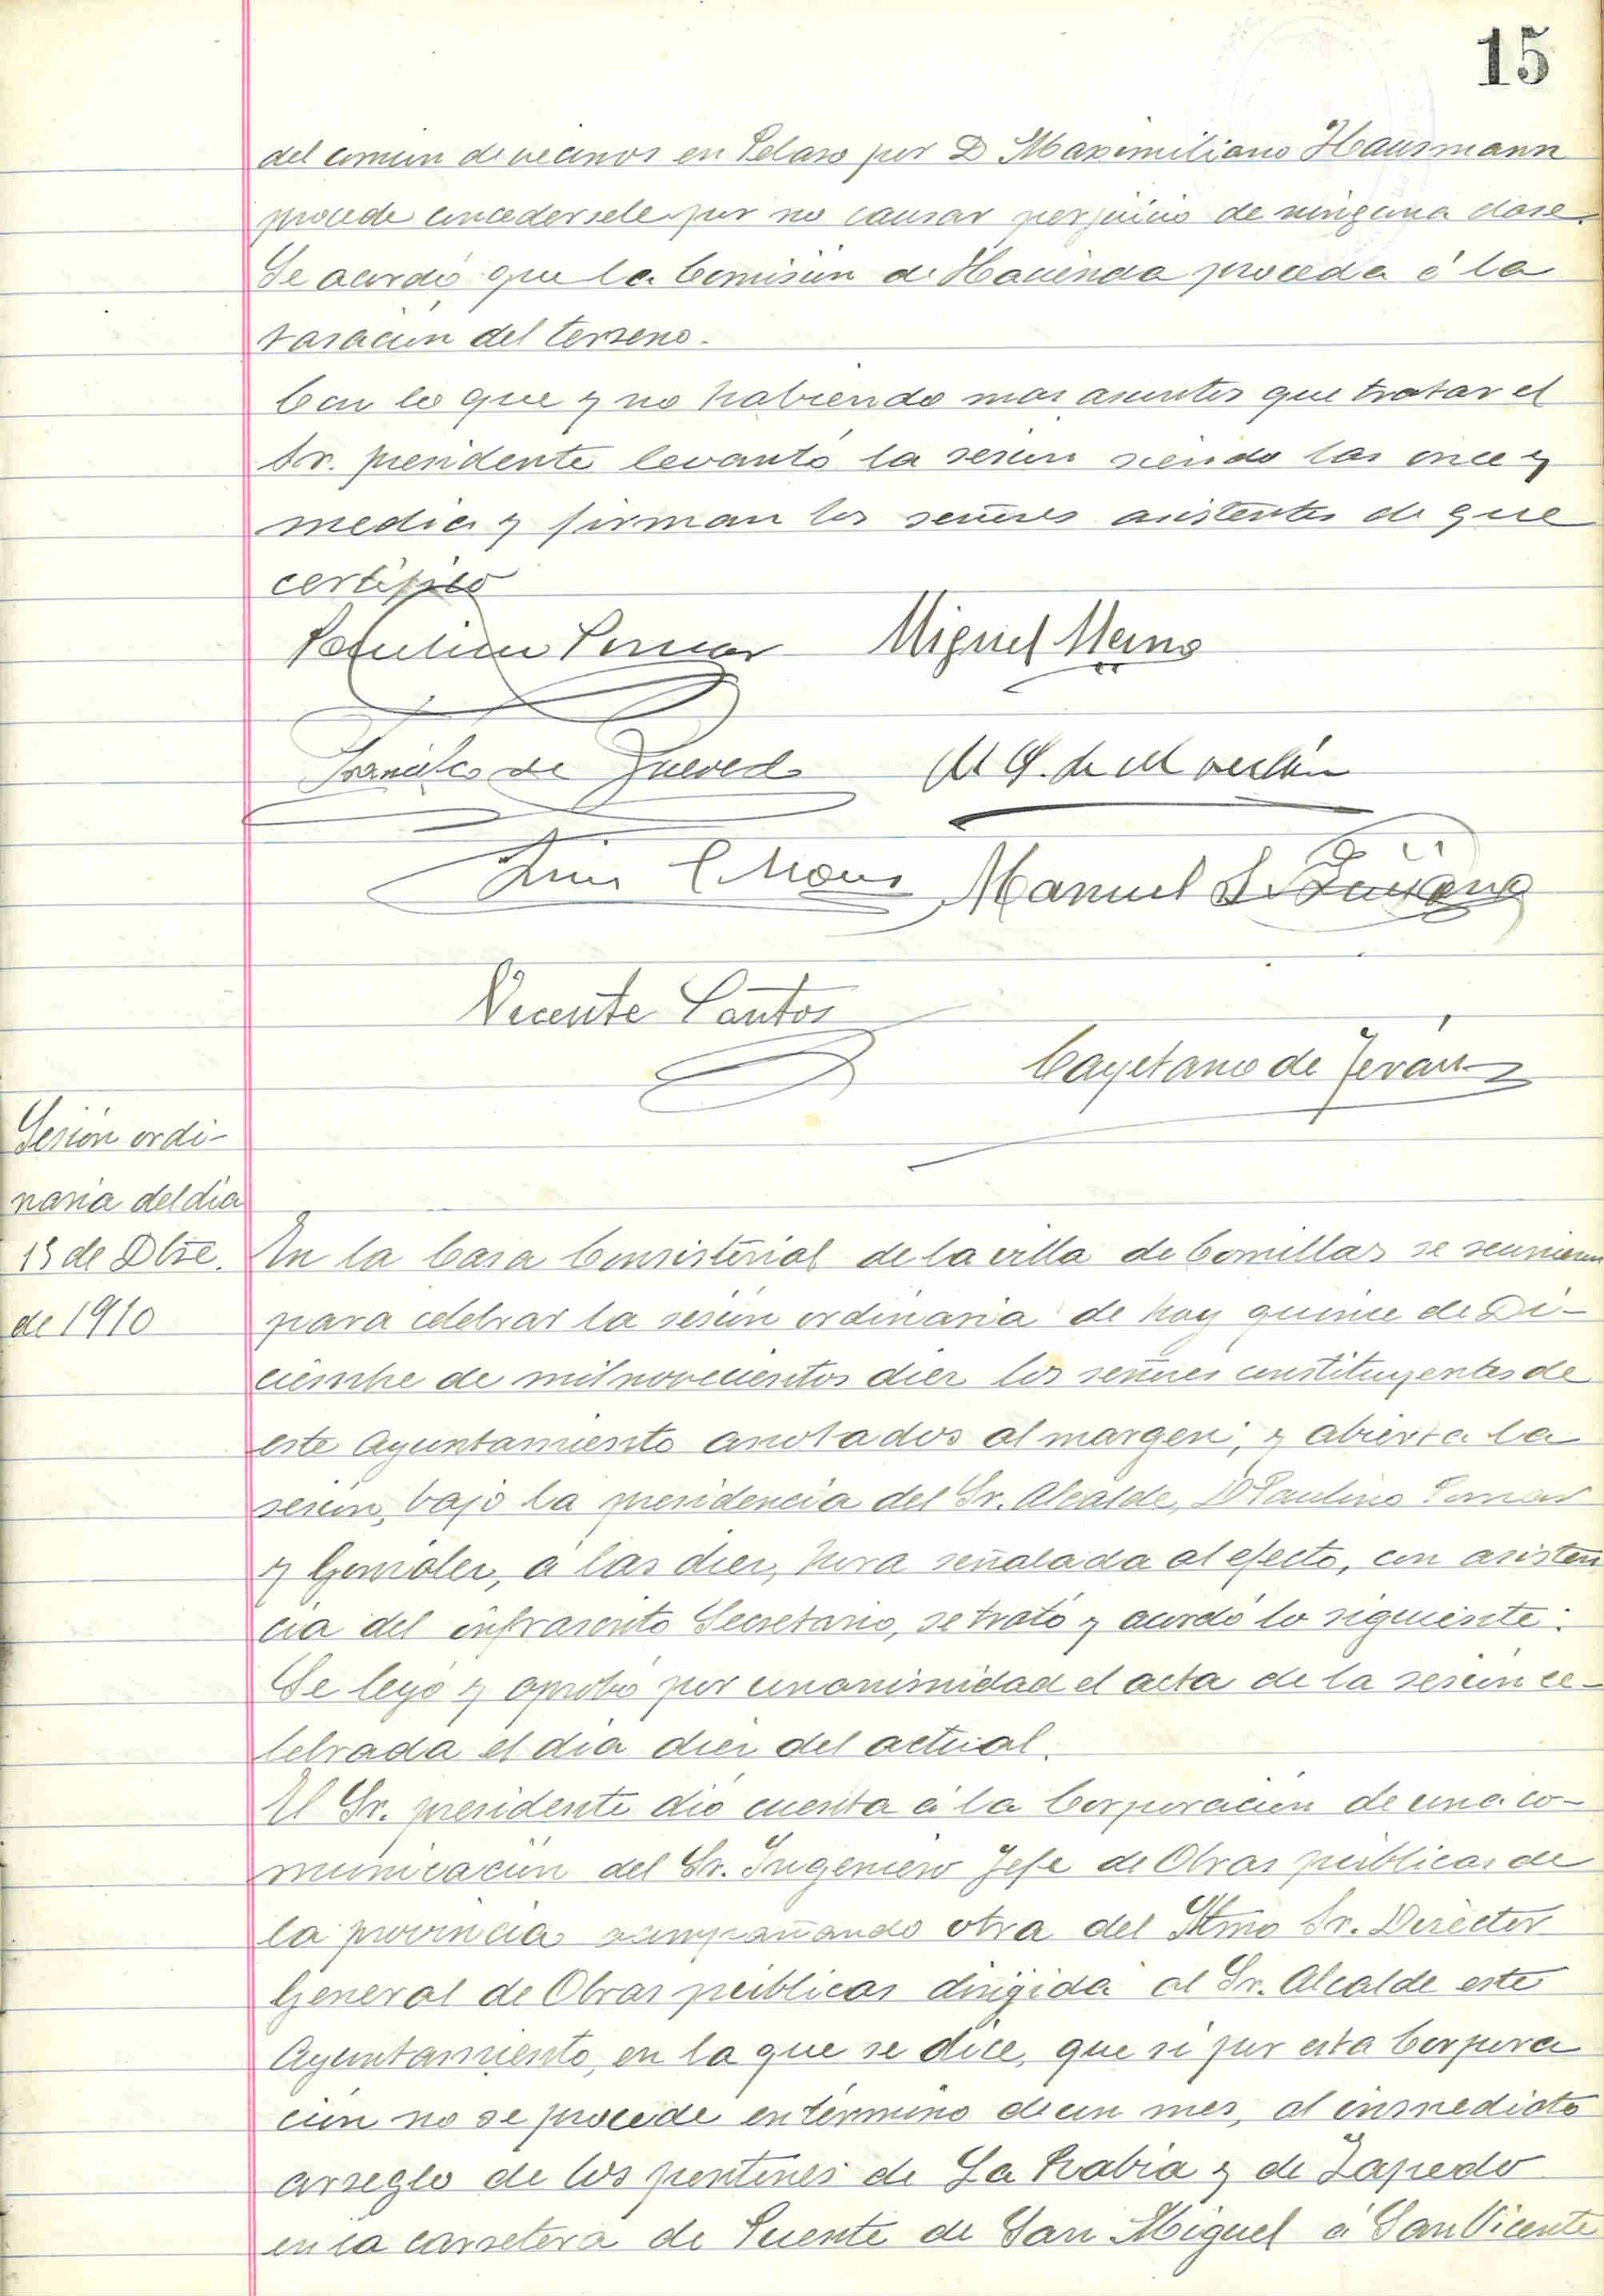 15
del comun de vecinos en Velaro por D Maximiliano Hausmann
procede concedersele por no causar perjuicio de ninguna clase.
Se acordó que la Comisión de Hacienda proceda á la
tasación del terreno.
Con lo que y no habiendo mas asuntos que tratar el
Sr. presidente levantó la sesion siendo las once y
media y firman los señores asistentes de que
certifico
Paulino Pomar Miguel Meino
Francisco de Quevedo M G. de
Luis Manuel S.
Vicente Santos
Cayetano de Terán
Sesión ordi-
naria del dia
15 de Dbre.
de 1910
En la Casa Consistorial de la villa de Comillas se reunieron
para celebrar la sesion ordinaria de hoy quince de Di-
ciembre de mil novecientos diez los señores constituyentes de
este Ayuntamiento anotados al margen, y abierta la
sesion, bajo la presidencia del Sr. Alcalde, D Paulino Pomar
y Gonzalez, á las diez, hora señalada al efecto, con asisten
cia del infrascrito Secretario, se trató y acordó lo siguiente:
Se leyó y aprobó por unanimidad el acta de la sesion ce-
lebrada el dia diez del actual.
El Sr. presidente dió cuenta á la Corporación de una co-
municación del Sr. Ingeniero Jefe de Obras públicas de
la provincia acompañando otra del Iltmo Sr. Director
General de Obras públicas dirigida al Sr. Alcalde este
Ayuntamiento, en la que se dice, que si por esta Corpora
ción no se procede en término de un mes, al inmediato
arreglo de los pontones de La Rabia y de Zapedo
en la carretera de Puente de San Miguel á San Vicente